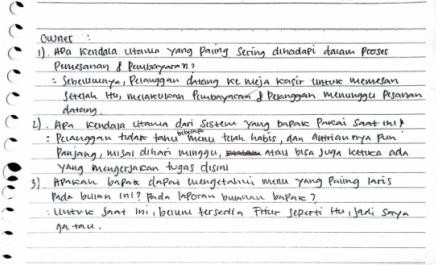 Owner :
1). Apa kendala utama yang paling sering dihadapi dalam proses
Pemesanan & Pembayaran?
: Sebelumnya, Pelanggan datang ke meja kasir untuk memesan
setelah itu, melakukan Pembayaran & Pelanggan menunggu Pesanan
datang.
2). Apa kendala utama dari sistem yang bapak Pakai saat ini?
: Pelanggan tidak tahu beberapa menu telah habis, dan Antriannya pun
Panjang, misal dihari minggu, atau bisa juga ketika ada
yang mengerjakan tugas disini
3) Apakah bapak dapat mengetahui menu yang Paling laris
Pada bulan ini? Pada laporan bulanan bapak?
: Untuk saat ini, belum tersedia Fitur seperti itu, jadi saya
ga tau.